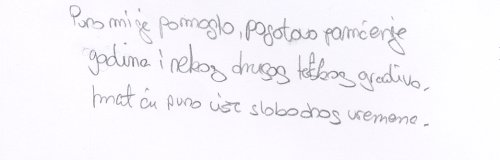 Puno mi je pomoglo, pogotovo pamćenje
godina i nekog drugog teškog gradiva.
Imat ću puno više slobodnog vremena.